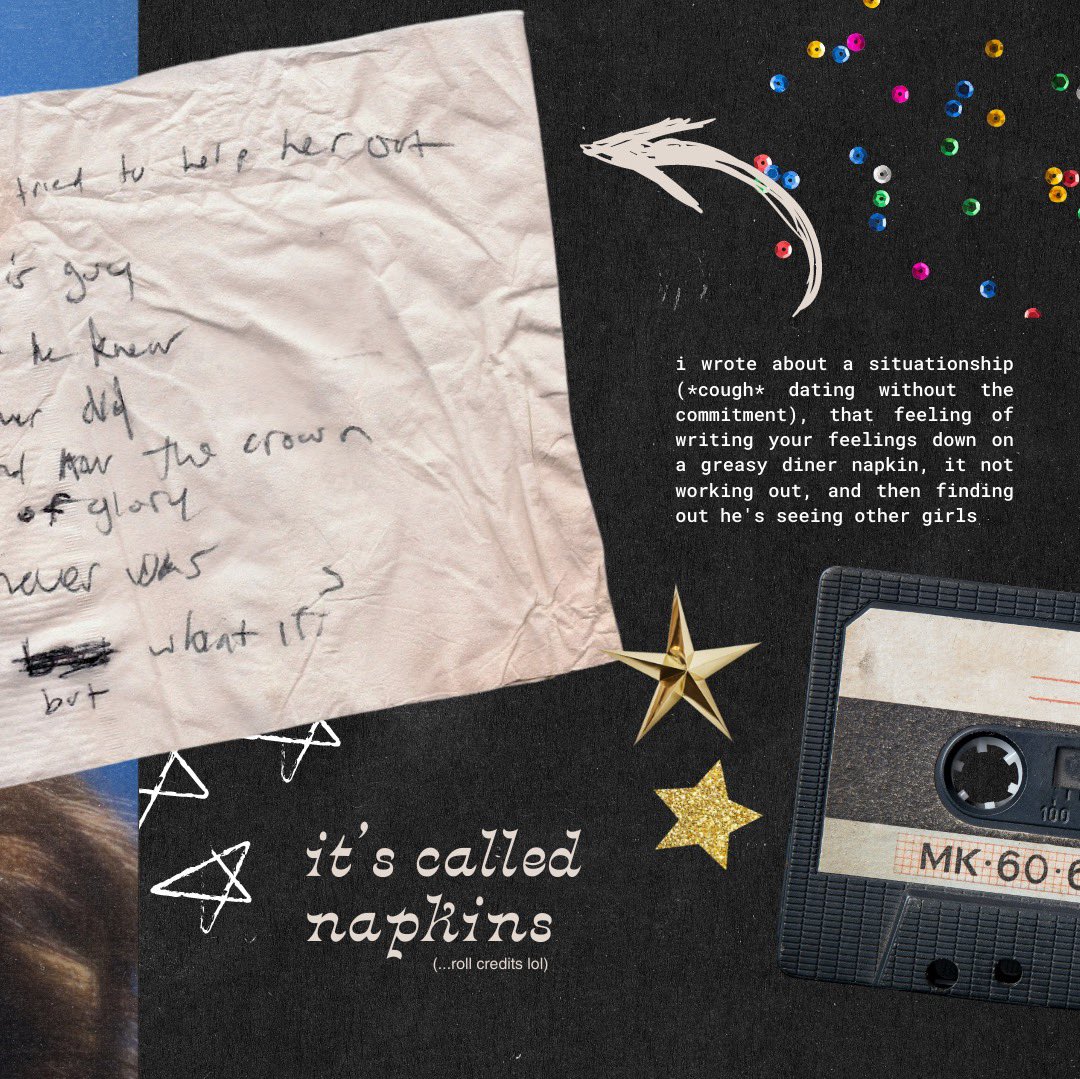 tried to help her out
guy
he knew
did
the crown
of glory
never was
what if
but
i wrote about a situationship
(*cough* dating without the
commitment), that feeling of
writing your feelings down on
a greasy diner napkin, it not
working out, and then finding
out he's seeing other girls
100
MK·60·6
it's called
napkins
(...roll credits lol)